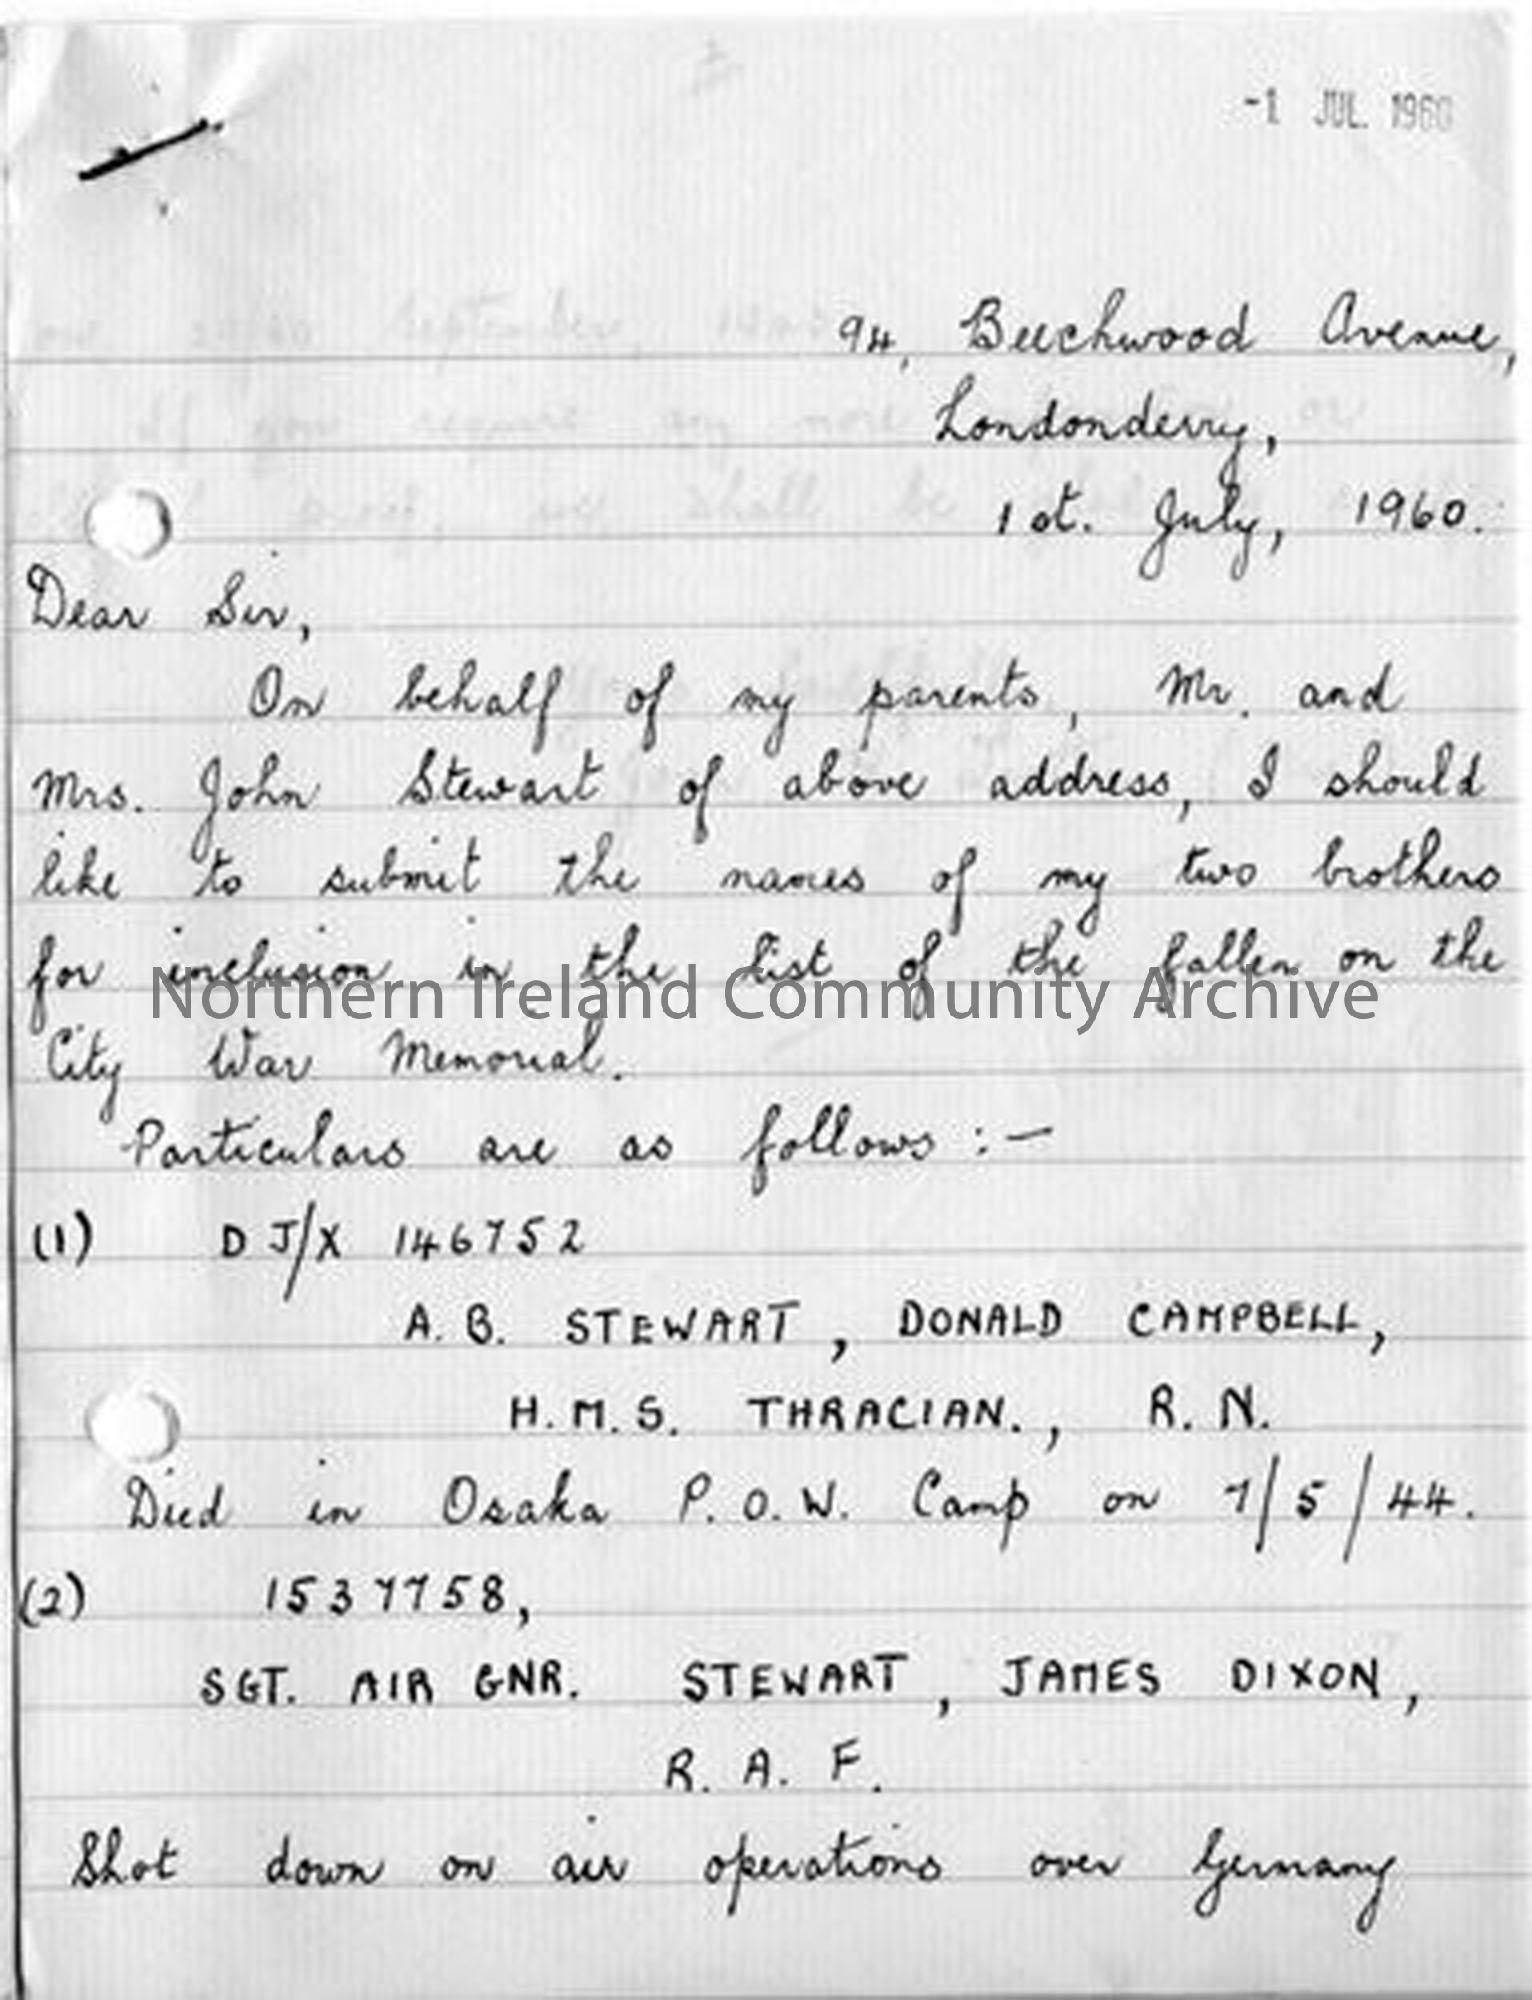 -1 JUL. 1960
94, Beechwood Avenue,
Londonderry,
1st. July, 1960.
Dear Sir,
On behalf of my parents, Mr. and
Mrs. John Stewart of above address, I should
like to submit the names of my two brothers
for inclusion in the list of the fallen on the
Northern Ireland Community Archive
City War Memorial.
Particulars are as follows :-
(1) D J/X 146752
A. B. STEWART, DONALD CAMPBELL,
H.M.S. THRACIAN., R.N.
Died in Osaka P.O.W. Camp on 7/5/44.
(2) 1537758,
SGT. AIR GNR. STEWART, JAMES DIXON,
R. A. F.
Shot down on air operations over Germany